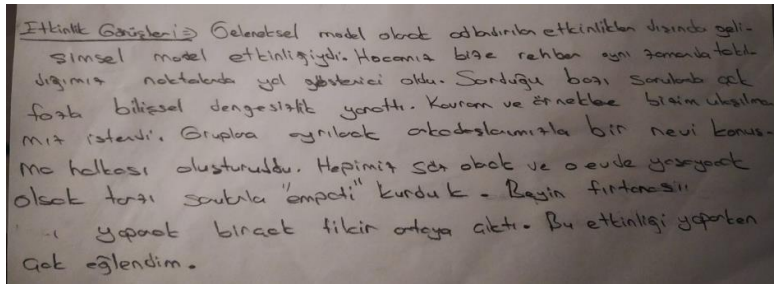 Etkinlik Görüşleri => Geleneksel model olarak adlandırılan etkinlikten dışında geli-
şimsel model etkinliğiydi. Hocamız bize rehber aynı zamanda takıl-
dığımız noktalarda yol gösterici oldu. Sorduğu bazı sorularla çok
fazla bilişsel dengesizlik yarattı. Kavram ve örnekler bizim
mız istendi. Gruplara ayrılarak arkadaşlarımızla bir nevi konuş-
ma halkası oluşturuldu. Hepimiz olarak ve o evde yaşayacak
olsak tarzı "empati" kurduk. Beyin fırtınası
yaparak birçok fikir ortaya çıktı. Bu etkinliği yaparken
çok eğlendim.